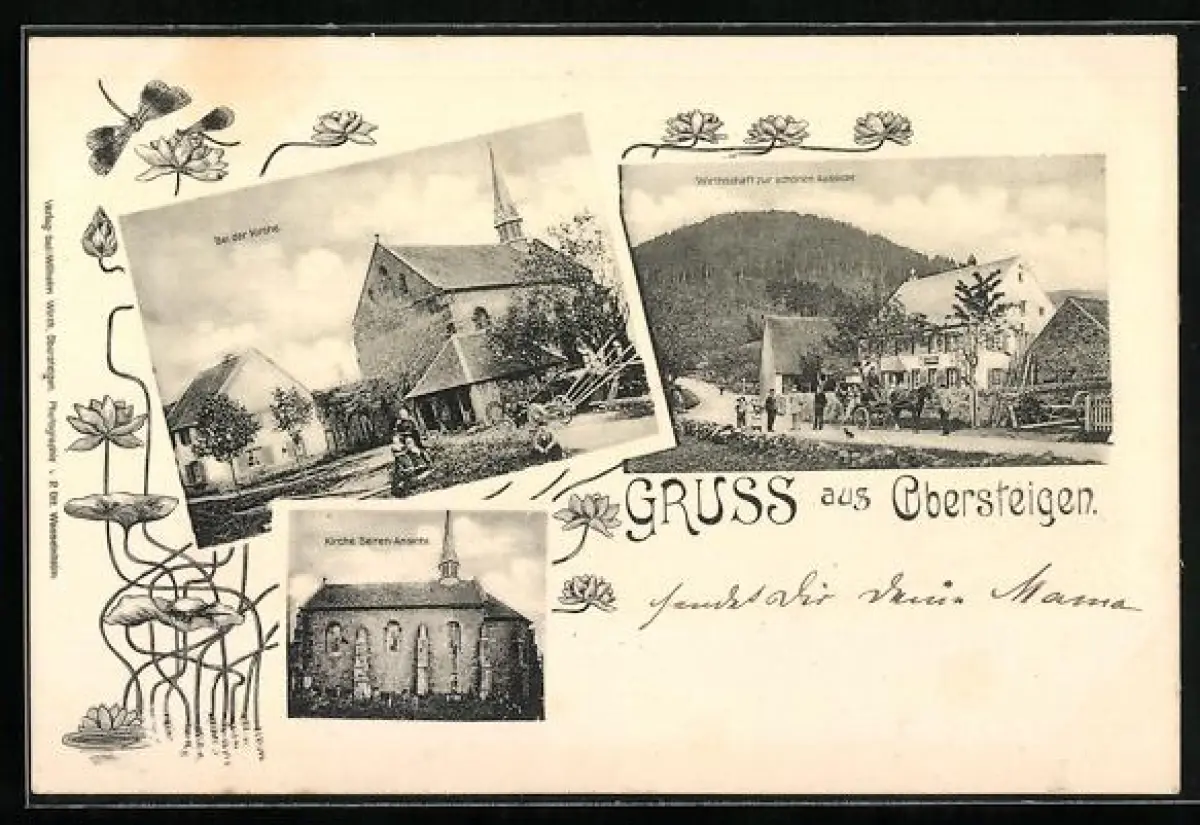 Bei der Kirche
Wirthschaft zur schönen Aussicht
Kirche Seiten-Ansicht
GRUSS aus Obersteigen.
sendet Dir deine Mama
Verlag bei Wilhelm Wirth, Obersteigen. Photographie v. P. Ott,